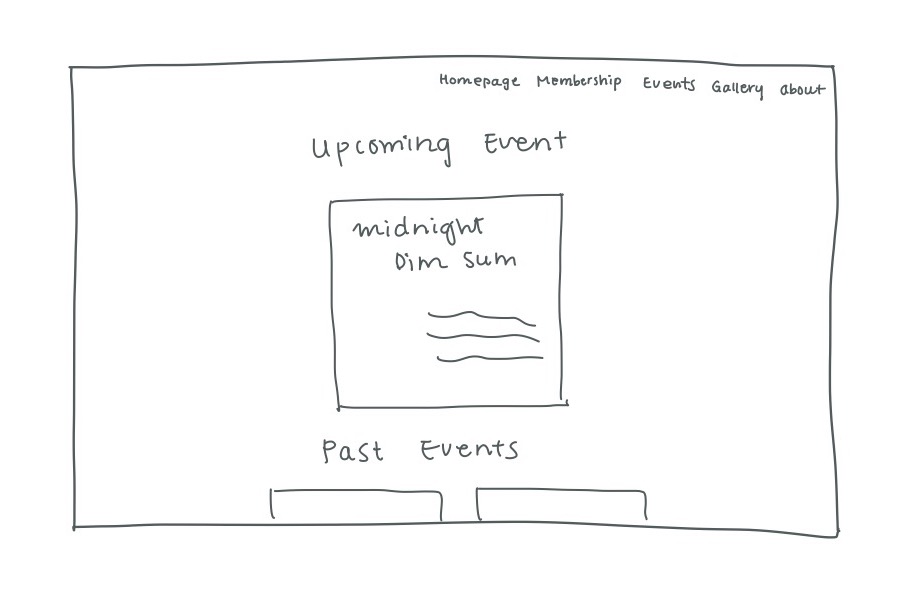 Homepage Membership Events Gallery about
Upcoming Event
midnight
Dim Sum
Past Events